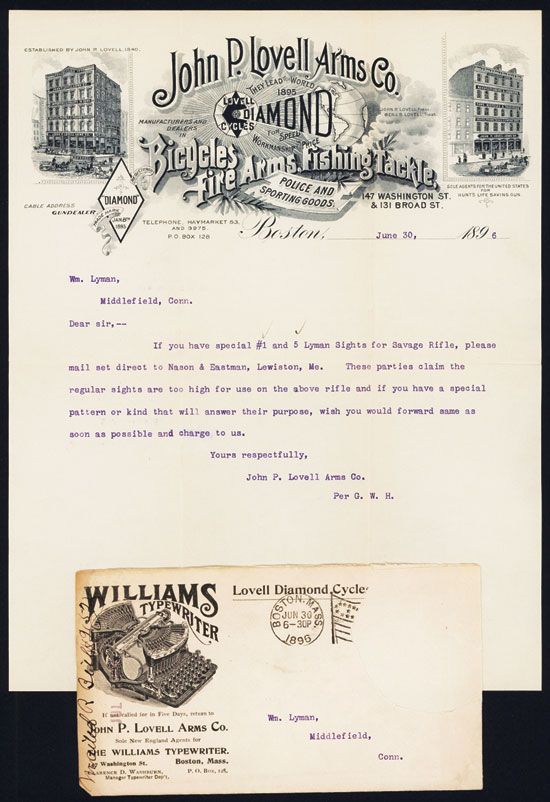 ESTABLISHED BY JOHN P. LOVELL, 1840.
John P. Lovell Arms Co.
THEY LEAD THE WORLD
1895
LOVELL DIAMOND CYCLES
FOR SPEED
WORKMANSHIP PRICE
MANUFACTURERS AND
DEALERS IN
JOHN P. LOVELL, Prest.
BENJ. S. LOVELL, Treas.
Bicycles
Fire Arms, Fishing Tackle,
POLICE AND
SPORTING GOODS.
147 WASHINGTON ST.
& 131 BROAD ST.
SOLE AGENTS FOR THE UNITED STATES
FOR
HUNTS LIFE SAVING GUN.
DIAMOND
TRADE MARK
JAN. 8TH
1895
CABLE ADDRESS
GUNDEALER
TELEPHONE, HAYMARKET 53,
AND 3975.
P.O. BOX 128
Boston, June 30, 1896
Wm. Lyman,
Middlefield, Conn.
Dear sir,--
If you have special #1 and 5 Lyman Sights for Savage Rifle, please
mail set direct to Nason & Eastman, Lewiston, Me. These parties claim the
regular sights are too high for use on the above rifle and if you have a special
pattern or kind that will answer their purpose, wish you would forward same as
soon as possible and charge to us.
Yours respectfully,
John P. Lovell Arms Co.
Per G. W. H.
WILLIAMS
TYPEWRITER
Lovell Diamond Cycles
BOSTON, MASS.
JUN 30
6-30P
1896
If not called for in Five Days, return to
JOHN P. LOVELL ARMS CO.
Sole New England Agents for
THE WILLIAMS TYPEWRITER.
147 Washington St. Boston, Mass.
CLARENCE D. WASHBURN, P. O. Box, 128.
Manager Typewriter Dep't.
Wm. Lyman,
Middlefield,
Conn.